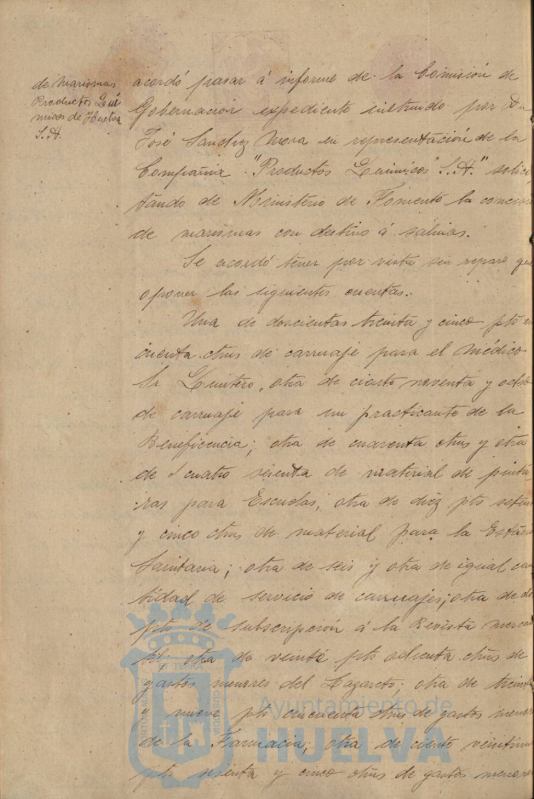 de marismas
Productos Quí
micos de Huelva
S.A.
acordó pasar á informe de la Comisión de
Gobernación expediente instruido por Don
José Sanchez Mora en representación de la
Compañia "Productos Quimicos" S.A." solici
tando de Ministerio de Fomento la concesi
de marismas con destino á salinas.
Se acordó tener por vistas sin reparo que
oponer las siguientes cuentas:
Una de doscientas treinta y cinco pts
cuenta ctms de carruaje para el Médico
Sr Quintero, otra de ciento noventa y ocho
de carruaje para un practicante de la
Beneficencia; otra de cuarenta ctms y otra
de cuatro sesenta de material de pintu
ras para Escuelas; otra de diez pts seten
y cinco ctms de material para la
Sanitaria; otra de seis y otra de igual can
tidad de servicio de carruajes; otra de
pts de subscripción á la Revista
pts otra de veinte pts ochenta ctms de
gastos menores del Lazareto: otra de treinta
y nueve pts cincuenta ctms de gastos meno
de la Farmacia; otra de ciento
pts setenta y cinco ctms de gastos menores
Ayuntamiento de
HUELVA